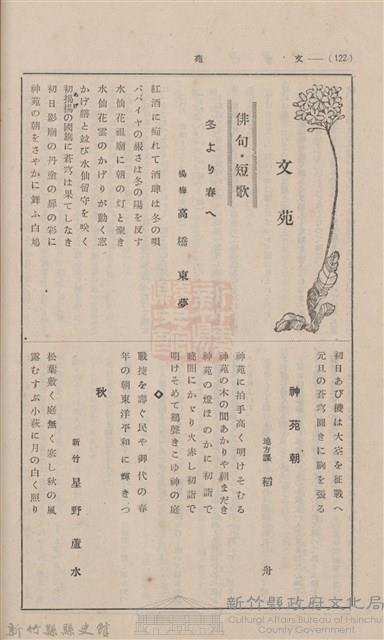 (122)——文苑
文苑
俳句・短歌
冬より春へ
楊梅 高橋東夢
紅酒に痴れて酒肆は冬の唄
パパイヤの緑さは冬の陽を反す
水仙花祖廟に朝の灯と聖き
水仙花雲のかげりが動く窓
かげ膳と竝び水仙留守を咲く
初揚揚の國旗に蒼穹は果てしなき
初日影廟の丹塗の扉の彩に
神苑の朝をさやかに舞ふ白鳩
初日あび機は大空を征戰へ
元旦の蒼穹圓きに胸を張る
神苑朝
地方課 稻舟
神苑に拍手高く明けそむる
神苑の木の間あかりや朝まだき
神苑の燈ほのかに初詣で
曉闇にかゞり火赤し初詣で
明けそめて鷄聲きこゆ神の庭
◇
戰捷を壽ぐ民や御代の春
年の朝東洋平和に輝きつ
秋
新竹 星野蘆水
松葉敷く庭無く寒し秋の風
露むすぶ小萩に月の白く照り
新竹縣縣史館
新竹縣政府文化局
Cultural Affairs Bureau of Hsinchu
County Government